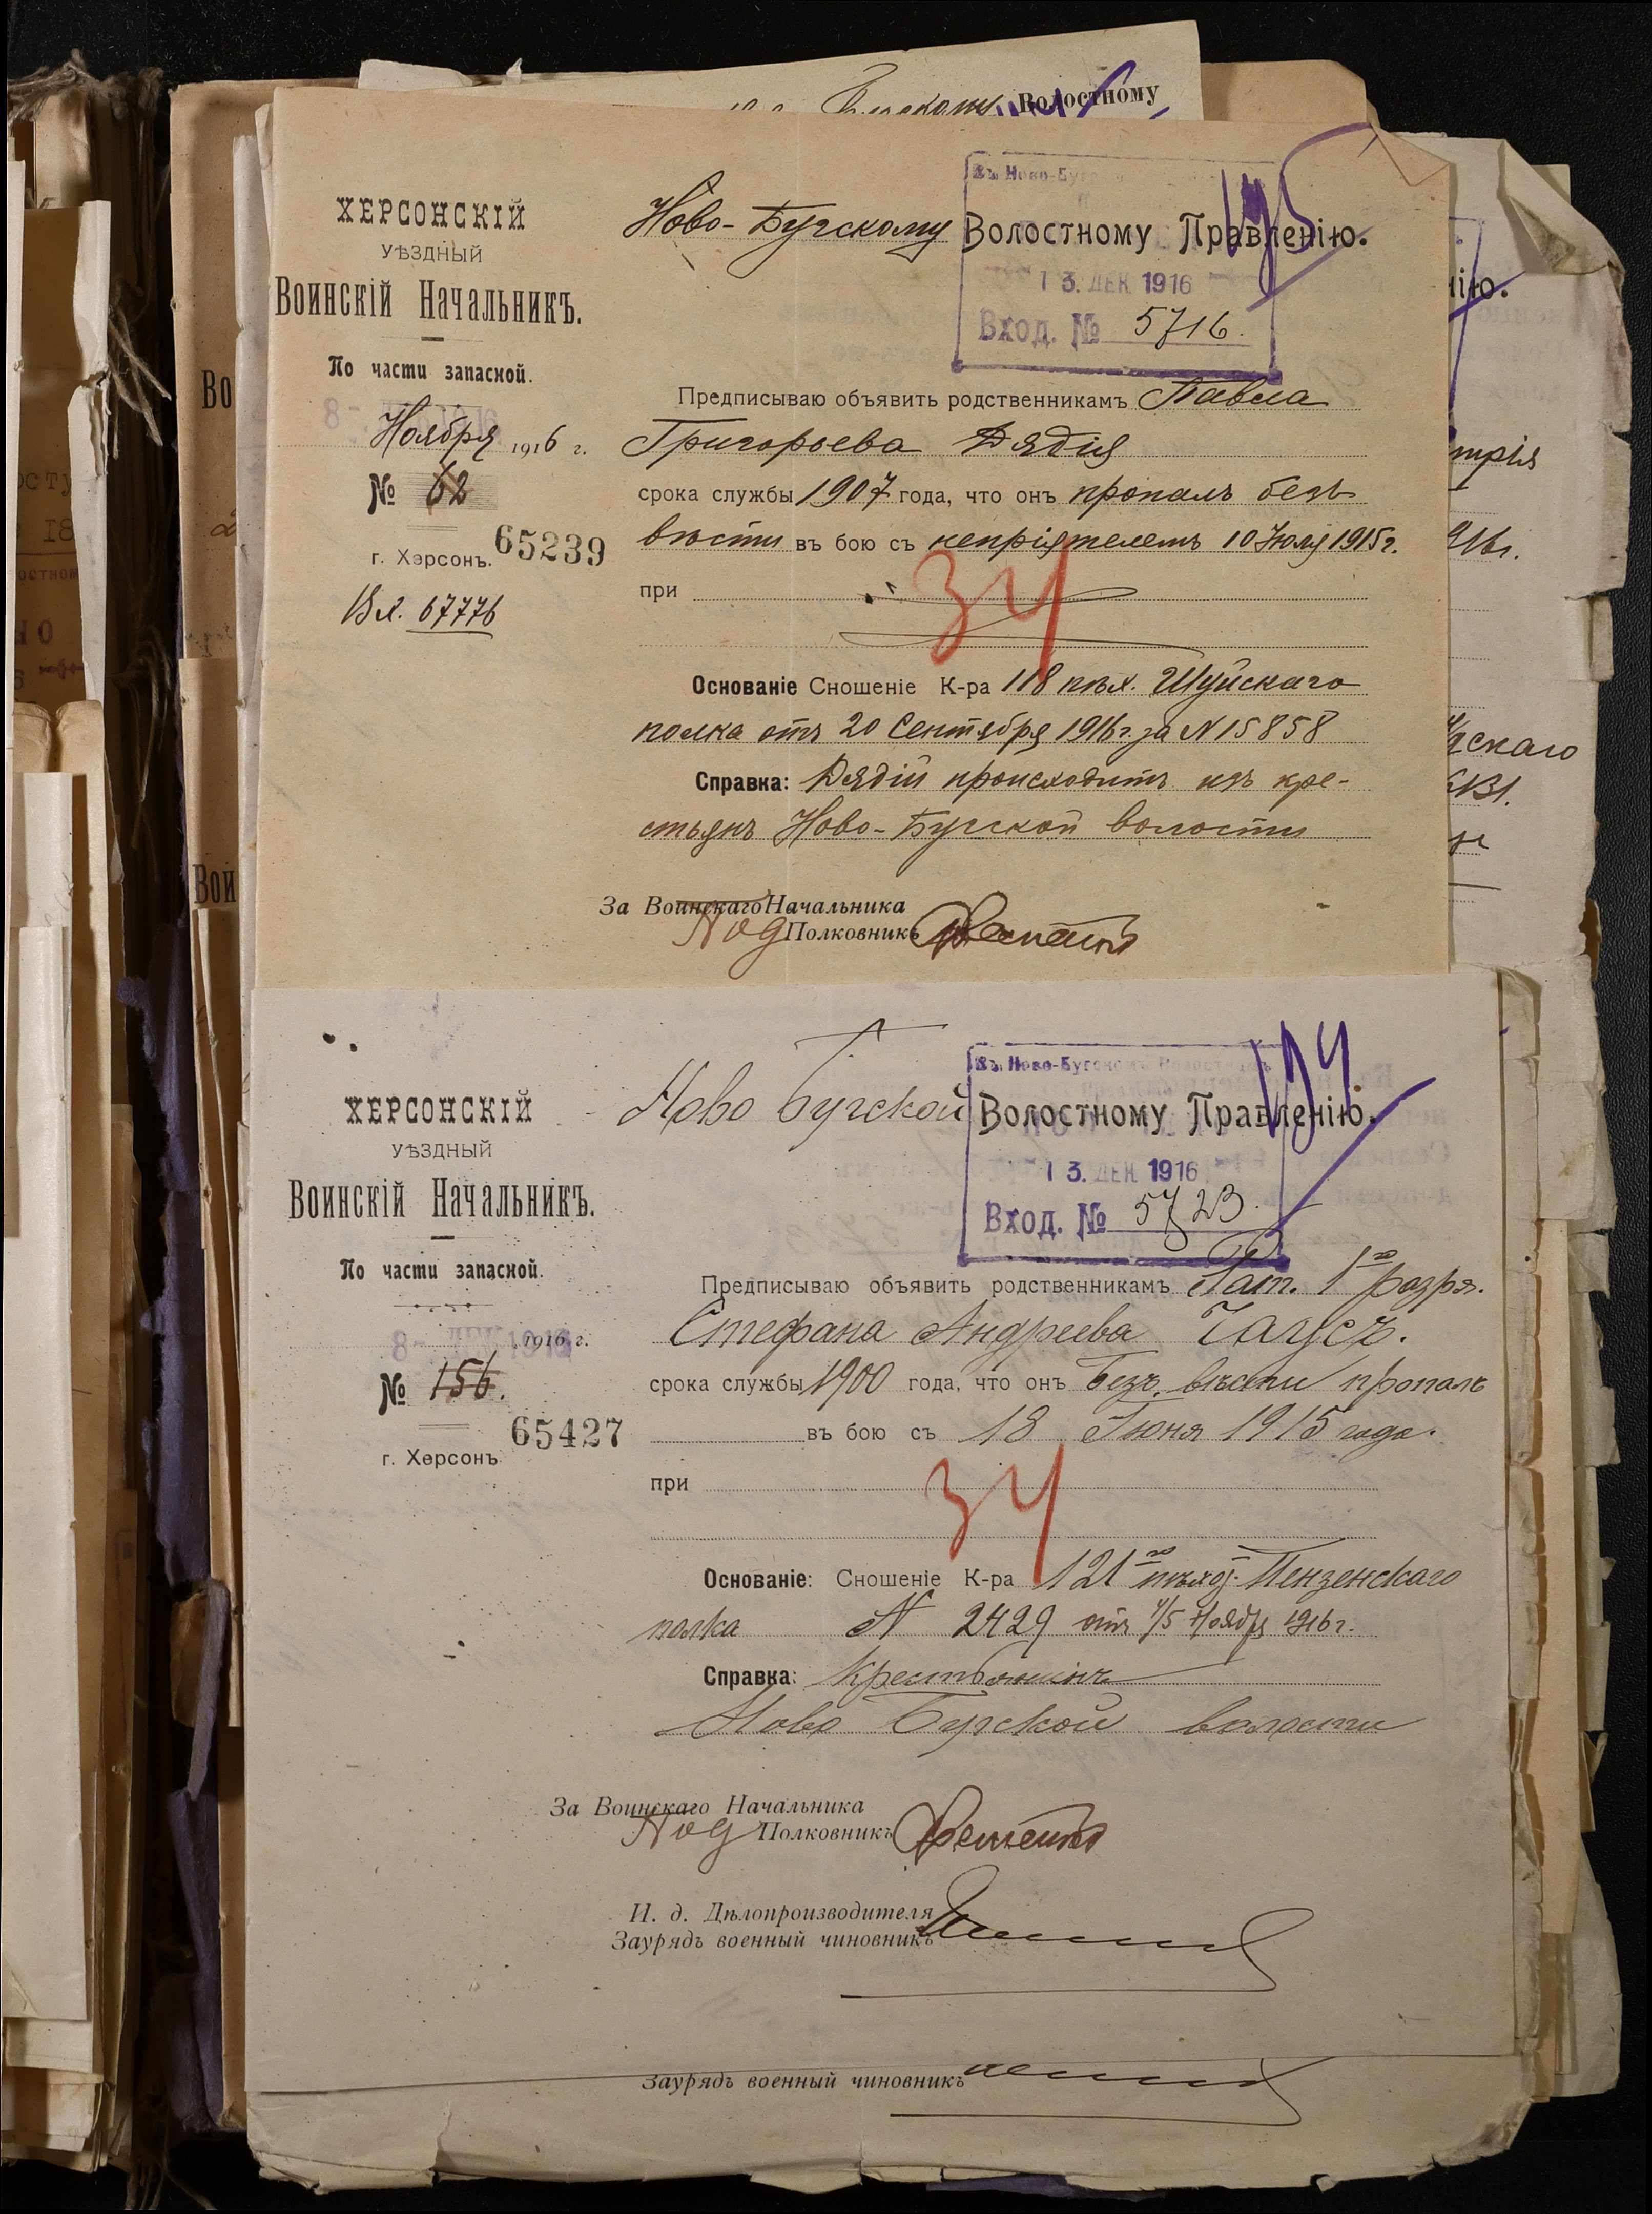 Волостному
ХЕРСОНСКІЙ
УѢЗДНЫЙ
Воинскій Начальникъ.
По части запасной.
8 - ДЕК 1916
Ноября 1916 г.
№ 62
65239
г. Херсонъ.
Вх. 67776
Въ Ново-Буг
195
Ново-Бугскому Волостному Правленію.
13. ДЕК 1916
Вход. № 5716.
Предписываю объявить родственникамъ Павла
Григорьева Дядія
срока службы 1907 года, что онъ пропалъ безъ
вѣсти въ бою съ непріятелемъ 10 Іюля 1915 г.
при
34
Основаніе Сношеніе К-ра 118 пѣх. Шуйскаго
полка отъ 20 Сентября 1916 г. за N 15858
Справка: Дядій происходитъ изъ кре-
стьянъ Ново-Бугской волости
За Воинскаго Начальника
Под Полковникъ
ХЕРСОНСКІЙ
УѢЗДНЫЙ
Воинскій Начальникъ.
По части запасной.
8 - ДЕК 1916
1916 г.
№ 156.
65427
г. Херсонъ
Въ Ново-Бугском Волостн
194
Ново Бугской Волостному Правленію.
13. ДЕК 1916
Вход. № 5723.
Предписываю объявить родственникамъ Рат. 1го разря.
Стефана Андреева Чаусъ.
срока службы 1900 года, что онъ безъ вѣсти пропалъ
въ бою съ 18 Іюня 1915 года.
при
34
Основаніе: Сношеніе К-ра 121го пѣхот. Пензенскаго
полка N 2429 отъ 4/5 Ноябр 1916 г.
Справка: Крестьянинъ
Ново Бугской волости
За Воинскаго Начальника
Под Полковникъ
И. д. Дѣлопроизводителя
Заурядъ военный чиновникъ
Заурядъ военный чиновникъ
Во
Вои
нію.
трія
916г.
скаго